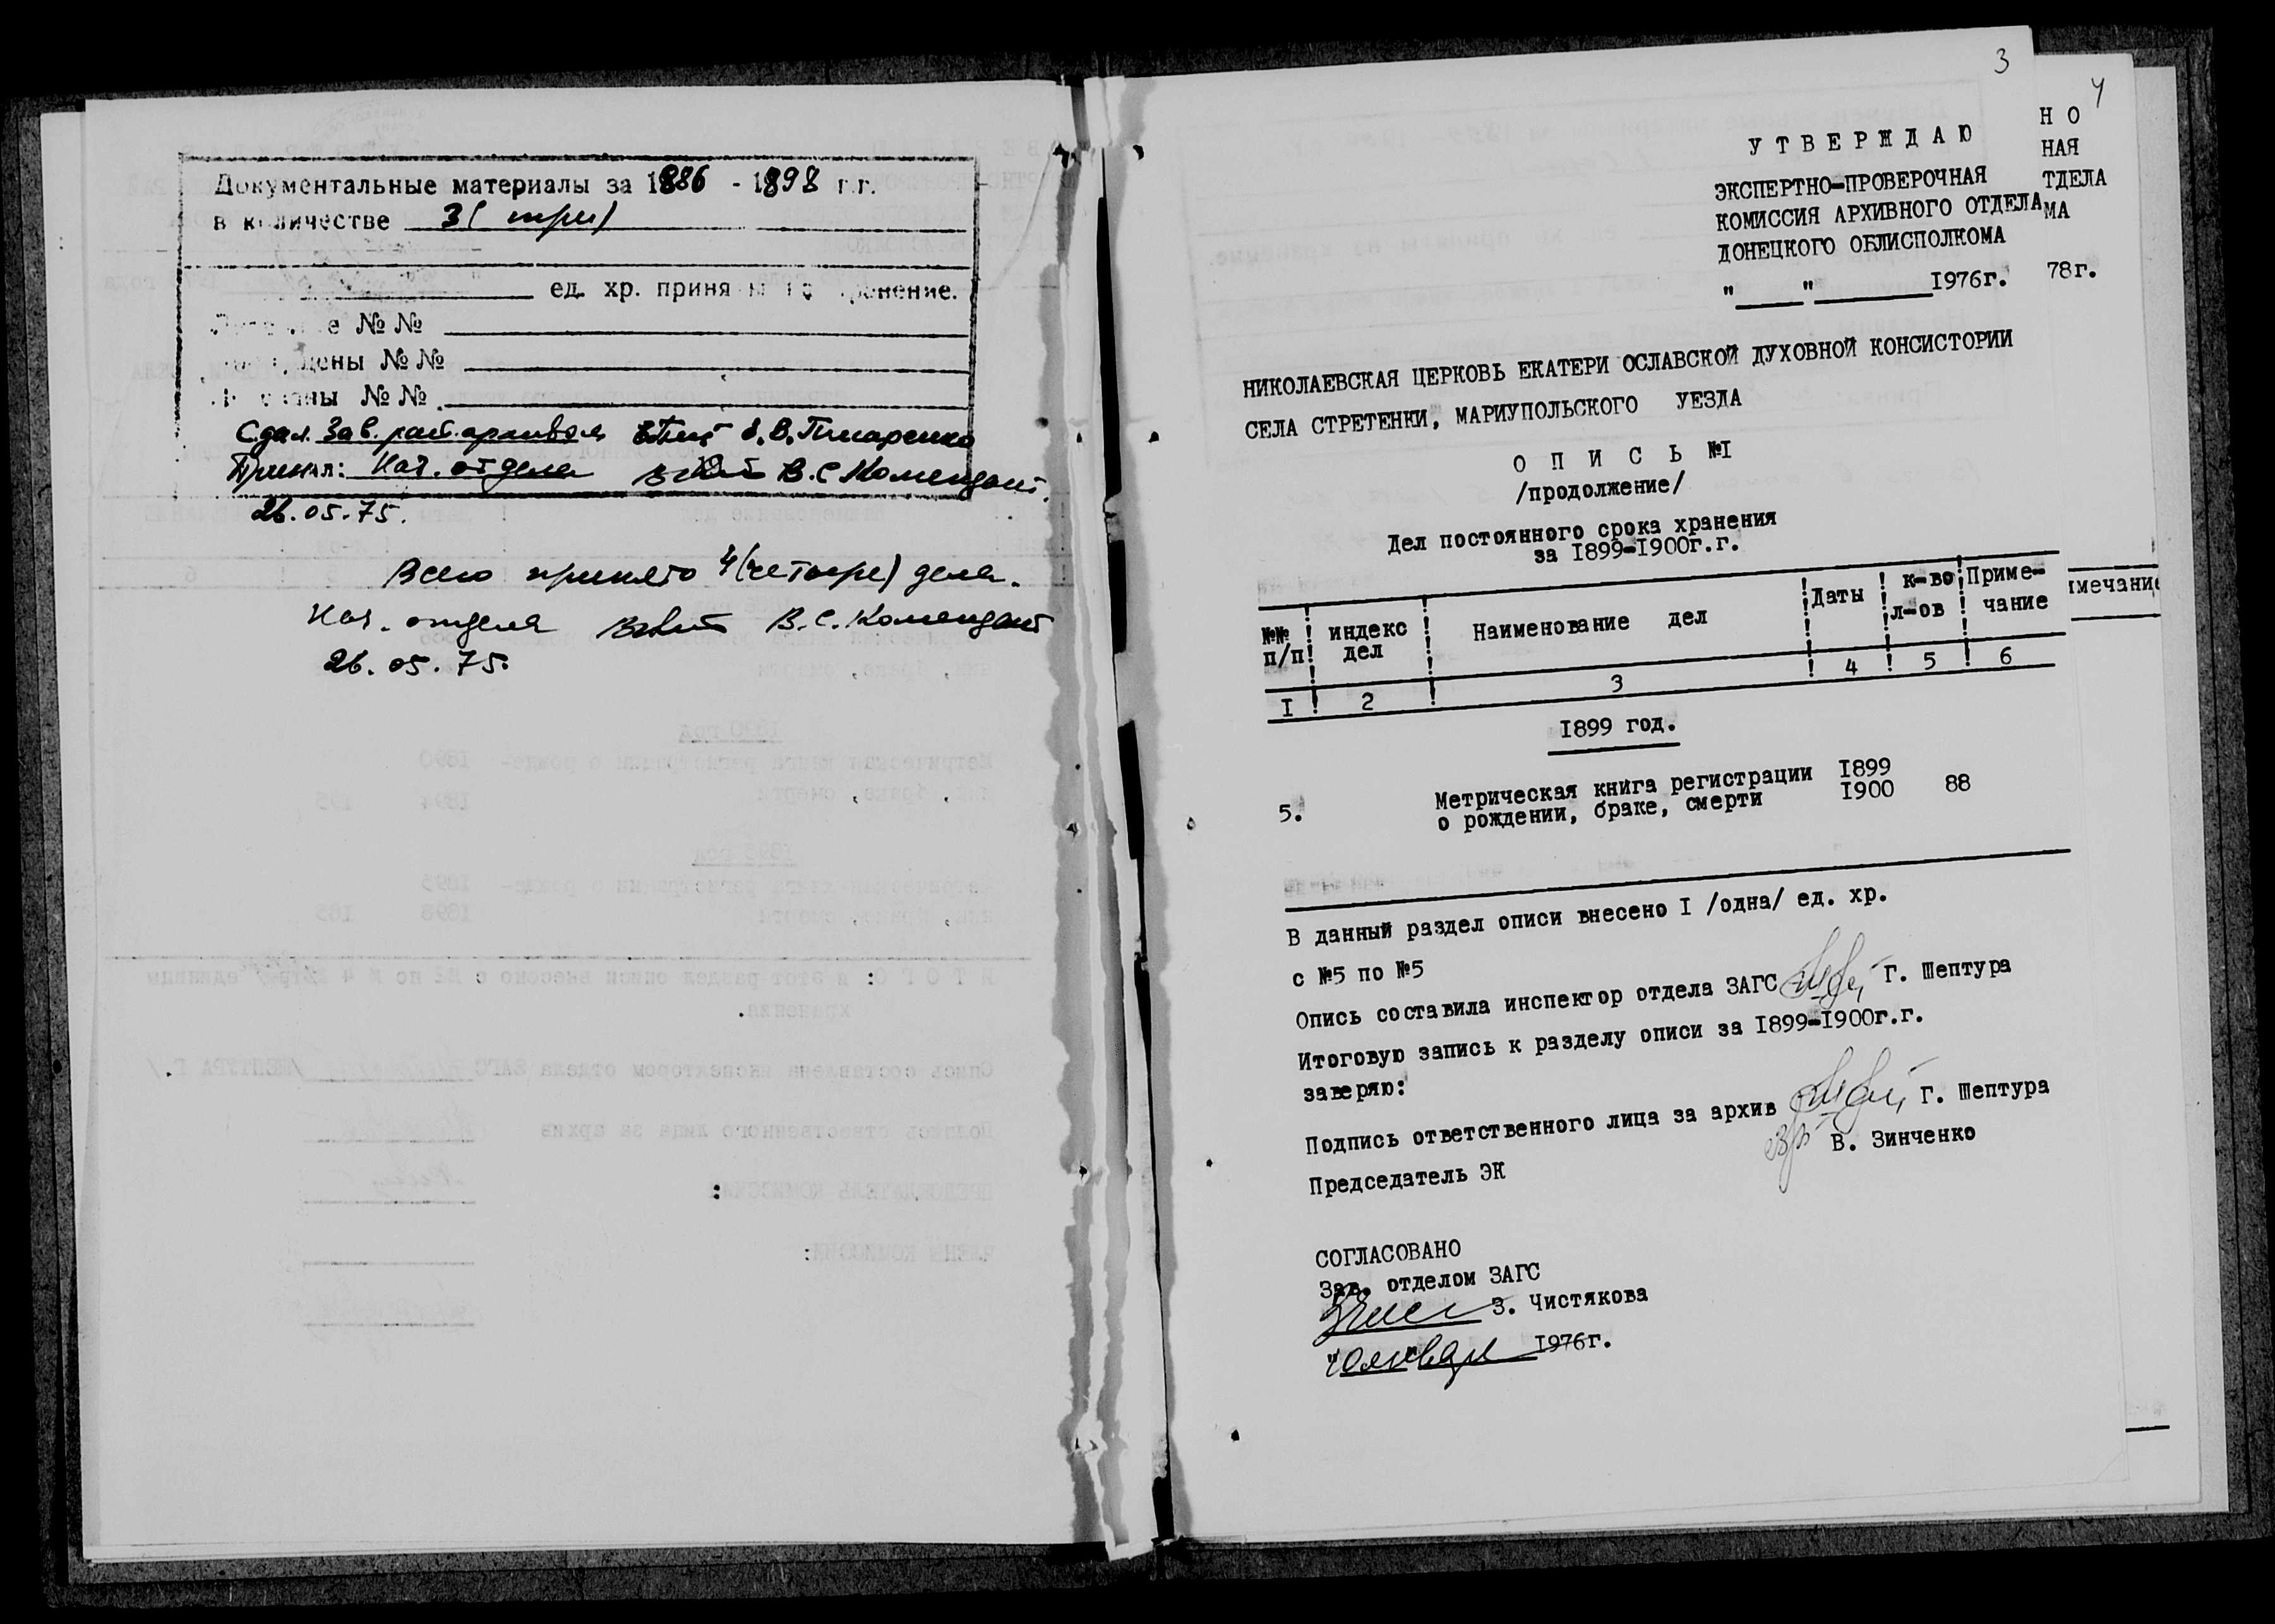 Документальные материалы за 1886 - 1898 г.г.
в количестве 3 (три)
ед. хр. приня
№ №
№ №
№ №
Сдал: Зав. рай. архивом
Принял: Нач. отдела В. С. Комендант.
26.05.75.
Всего принято 4 (четыре) дела.
Нач. отдела В. С. Комендант
26.05.75.
3
УТВЕРЖДАЮ
ЭКСПЕРТНО-ПРОВЕРОЧНАЯ
КОМИССИЯ АРХИВНОГО ОТДЕЛА
ДОНЕЦКОГО ОБЛИСПОЛКОМА
"____"________1976г.
НИКОЛАЕВСКАЯ ЦЕРКОВЬ ЕКАТЕРИ ОСЛАВСКОЙ ДУХОВНОЙ КОНСИСТОРИИ
СЕЛА СТРЕТЕНКИ, МАРИУПОЛЬСКОГО УЕЗДА
О П И С Ь №I
/продолжение/
Дел постоянного срока хранения
за I899-I900г.г.
№№ п/п ! индекс дел ! Наименование дел ! Даты ! к-во л-ов ! Приме-чание
I ! 2 ! 3 ! 4 ! 5 ! 6
I899 год.
5. Метрическая книга регистрации I899
о рождении, браке, смерти I900 88
В данный раздел описи внесено I /одна/ ед. хр.
с №5 по №5
Опись составила инспектор отдела ЗАГС Г. Шептура
Итоговую запись к разделу описи за I899-I900г.г.
заверяю:
Подпись ответственного лица за архив Г. Шептура
Председатель ЭК В. Зинченко
СОГЛАСОВАНО
Зав. отделом ЗАГС
З. Чистякова
января I976г.
4
Н О
НАЯ
ТДЕЛА
МА
78г.
имечание